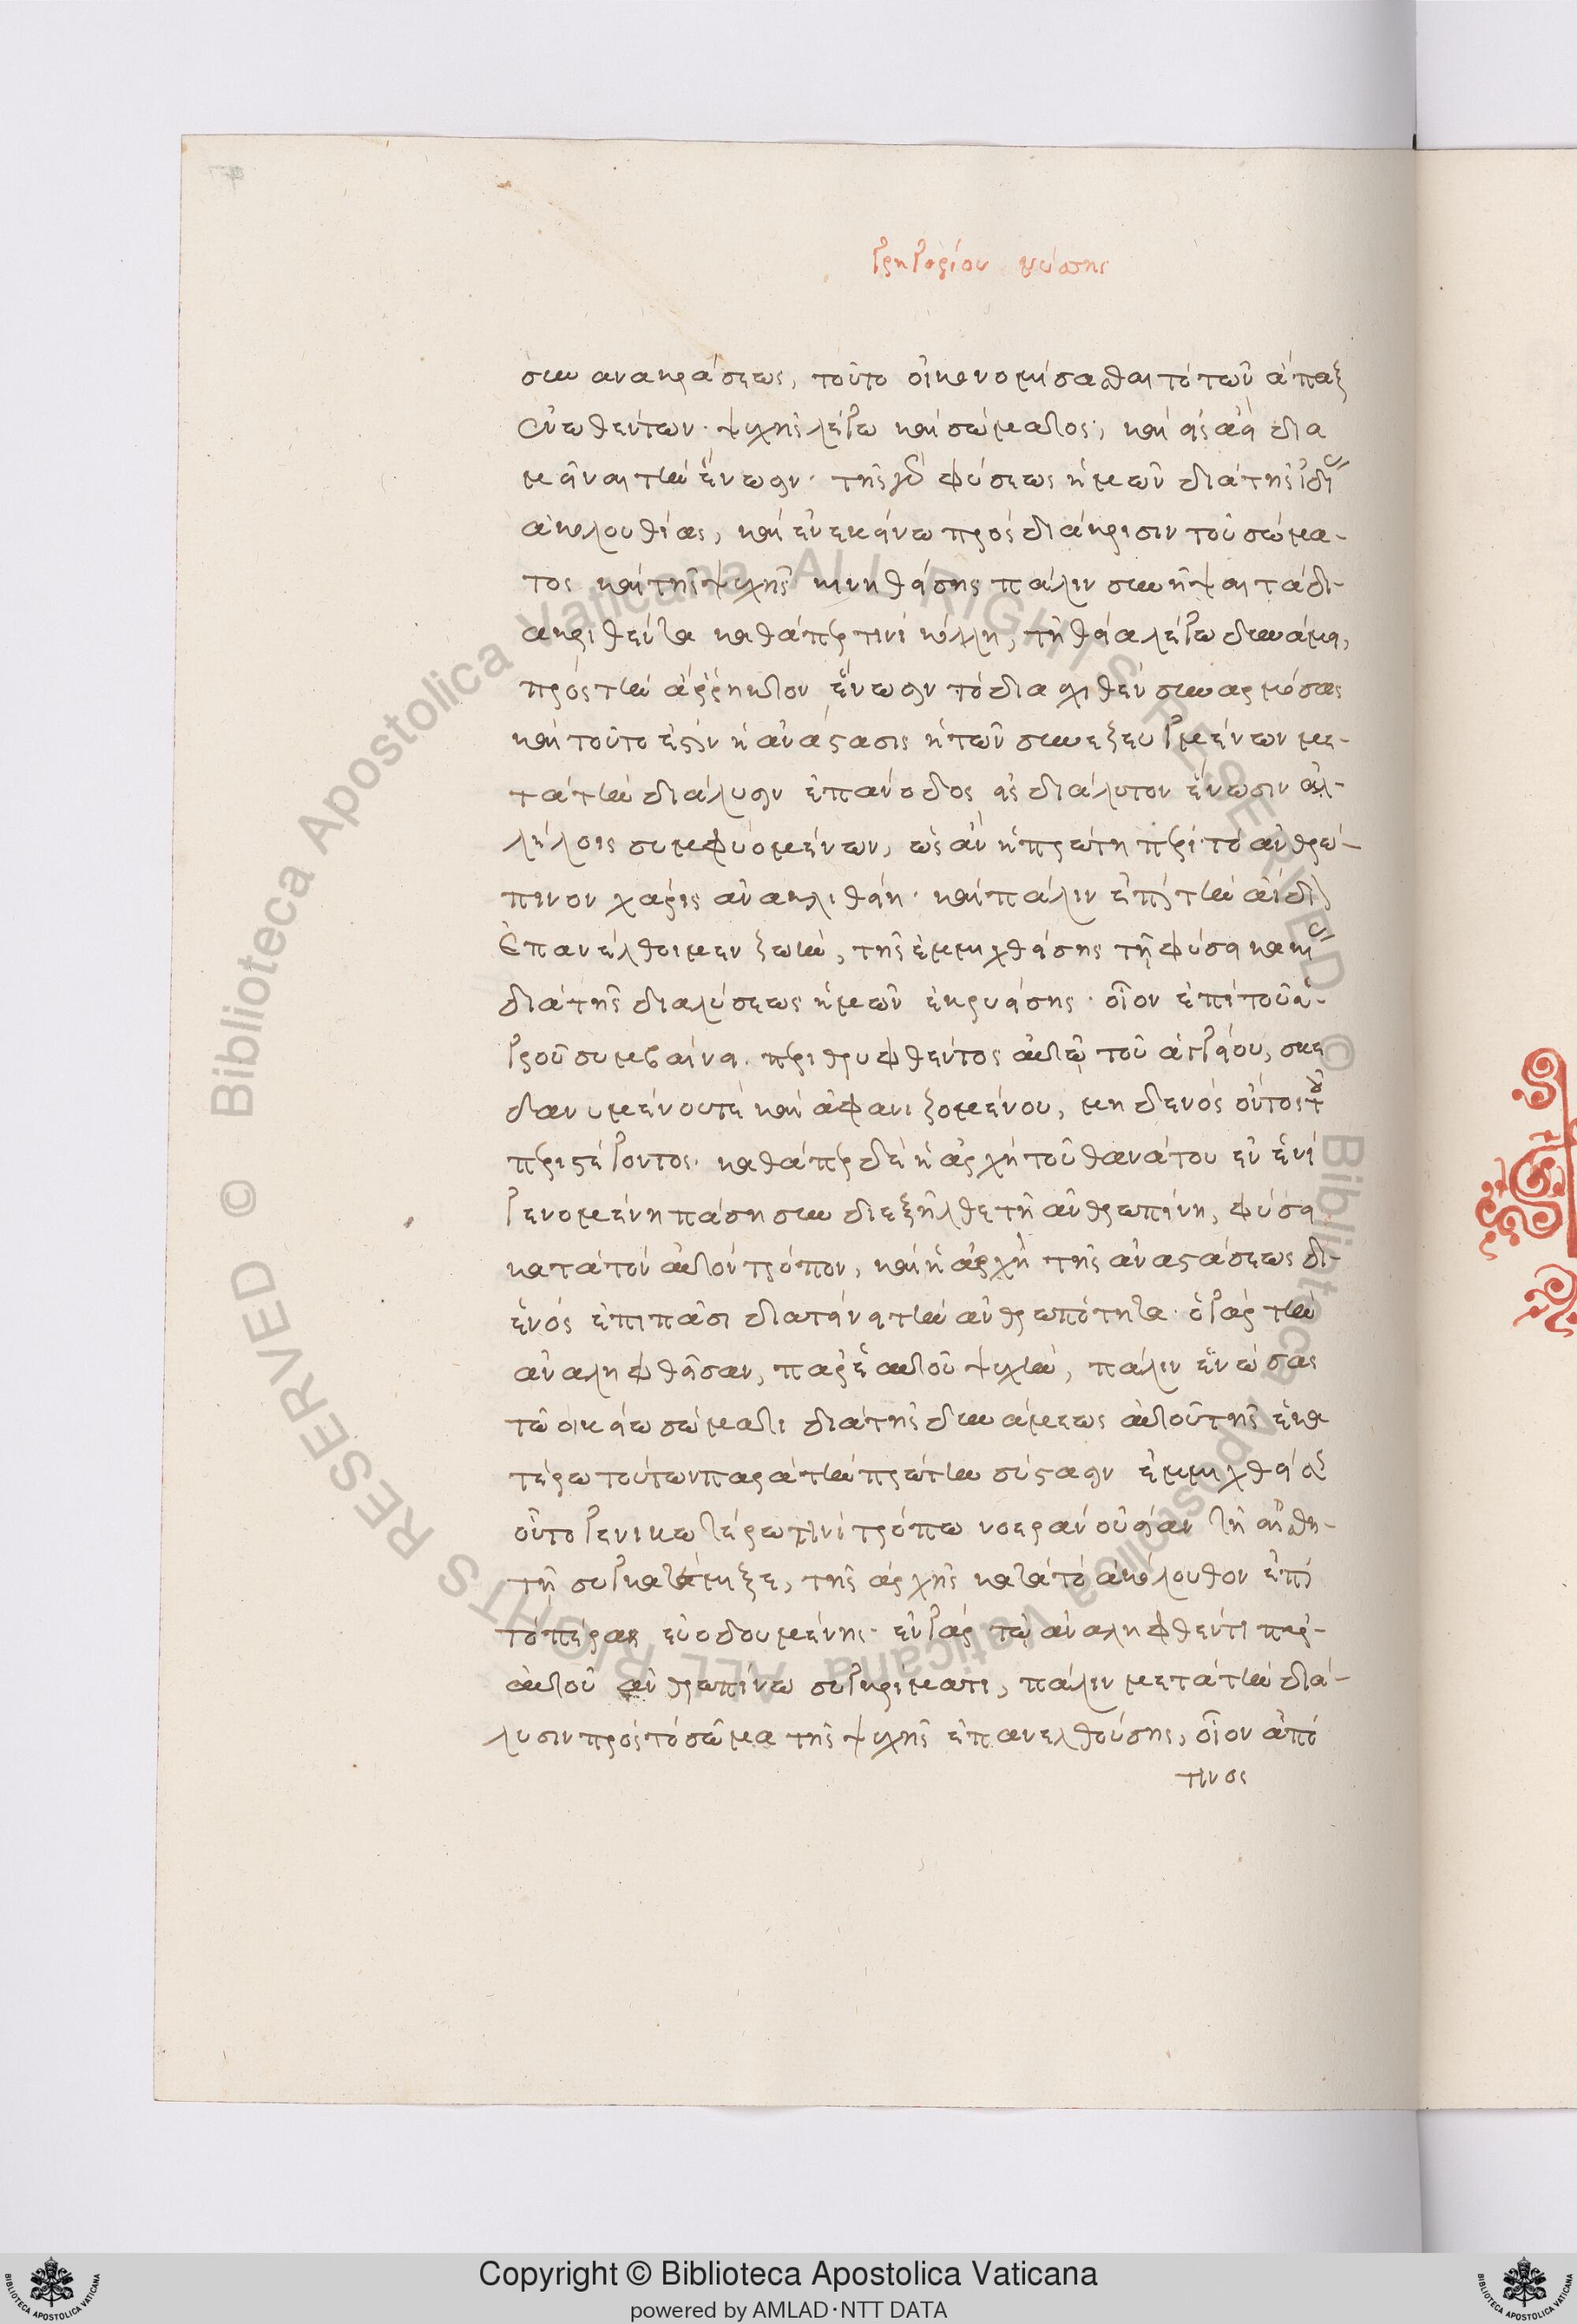 γρηγορίου νύσης
συνανακράσεως, τοῦτο οἰκονομήσασθαι τὸ τῶν ἅπαξ
ἑνωθέντων· ψυχῆς λέγω καὶ σώματος, καὶ εἰς ἀεὶ δια
μεῖναι τὴν ἕνωσιν· τῆς γὰρ φύσεως ἡμῶν διὰ τῆς ἰδίας
ἀκολουθίας, καὶ ἐν ἐκείνω πρὸς διάκρισιν τοῦ σώμα-
τος καὶ τῆς ψυχῆς κινηθείσης πάλιν συνῆψαι τὰ δι-
ακριθέντα καθάπερ τινὶ κόλλη, τῆ θεία λέγω δυνάμει,
πρὸς τὴν ἄρρηκτον ἕνωσιν τὸ διασχισθὲν συναρμόσας
καὶ τοῦτό ἐστιν ἡ ἀνάστασις ἡ τῶν συνεζευγμένων με-
τὰ τὴν διάλυσιν ἐπάνοδος εἰς διάλυτον ἕνωσιν ἀλ-
λήλοις συμφυομένων, ὡς ἂν ἡ πρώτη περὶ τὸ ἀνθρώ-
πινον χάρις ἀνακληθείη· καὶ πάλιν ἐπὶ τὴν ἀΐδιον
ἐπανέλθοιμεν ζωὴν, τῆς ἐμμιχθείσης τῇ φύσει κακίας
διὰ τῆς διαλύσεως ἡμῶν ἐκρυείσης· οἷον ἐπὶ τοῦ ὑ-
γροῦ συμβαίνει. περιθρυφθέντος αὐτῷ τοῦ ἀγγείου, σκε
δαννυμένου τε καὶ ἀφανιζομένου, μηδενὸς ὄντος τοῦ
περιστέγοντος· καθάπερ δὲ ἡ ἀρχὴ τοῦ θανάτου ἐν ἑνὶ
γενομένη πάση συνδιεξῆλθε τῆ ἀνθρωπίνη, φύσει
κατὰ τὸν αὐτὸν τρόπον, καὶ ἡ ἀρχὴ τῆς ἀναστάσεως δι-
ἑνὸς ἐπὶ πᾶσι διατείνει τὴν ἀνθρωπότητα· ὁ γὰρ τὴν
ἀναληφθεῖσαν, παρ' ἑαυτοῦ ψυχὴν, πάλιν ἑνώσας
τῶ οἰκείω σώματι διὰ τῆς δυνάμεως αὐτοῦ τῆς ἑκα
τέρω τούτων παρὰ τὴν πρώτην σύστασιν ἐμμιχθείσης
οὕτο γενικωτέρω τινὶ τρόπω νοερὰν οὐσίαν τῆ αἰσθη-
τῆ συγκατέμιξε, τῆς ἀρχῆς κατὰ τὸ ἀκόλουθον ἐπὶ
τὸ πέρας εὐοδουμένης· ἐν γὰρ τῷ ἀναληφθέντι παρ'-
αὐτοῦ ἀνθρωπίνω συγκρίματι, πάλιν μετὰ τὴν διά-
λυσιν πρὸς τὸ σῶμα τῆς ψυχῆς ἐπανελθούσης, οἷον ἀπό
τινος
Copyright © Biblioteca Apostolica Vaticana
powered by AMLAD·NTT DATA